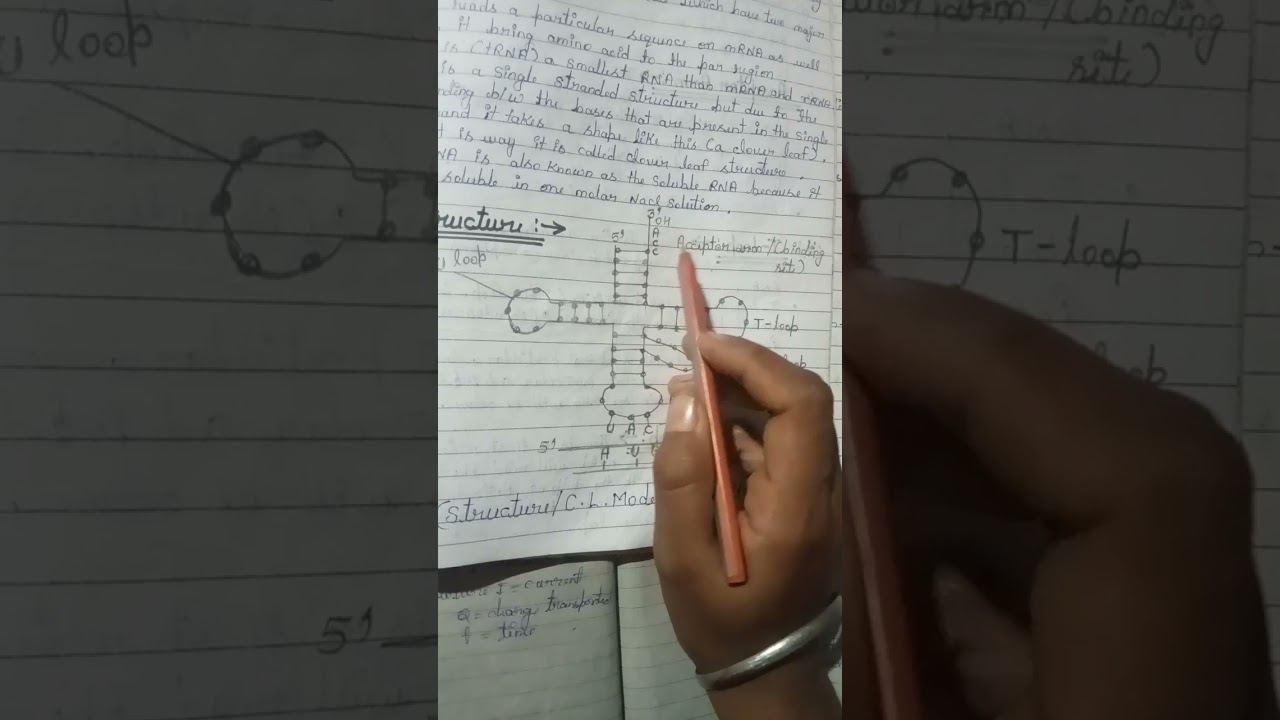 which have two major
reads a particular sequence on mRNA as well
it bring amino acid to the par region
is (tRNA) a smallest RNA than mRNA and rRNA.
is a single stranded structure but due to the
nding b/w the bases that are present in the single
and it takes a shape like this (a clover leaf).
t is way it is called clover leaf structure.
NA is also known as the soluble RNA because it
soluble in one molar Nacl solution.
ructure :→
3'
OH
A
C
C
5'
P
Aceptor arm/(binding
site)
loop
T-loop
U A C
5'
A U
(Structure/C.L. Mode
I = current
Q = charge transported
t = time
loop
5'
arm/(binding
site)
T-loop